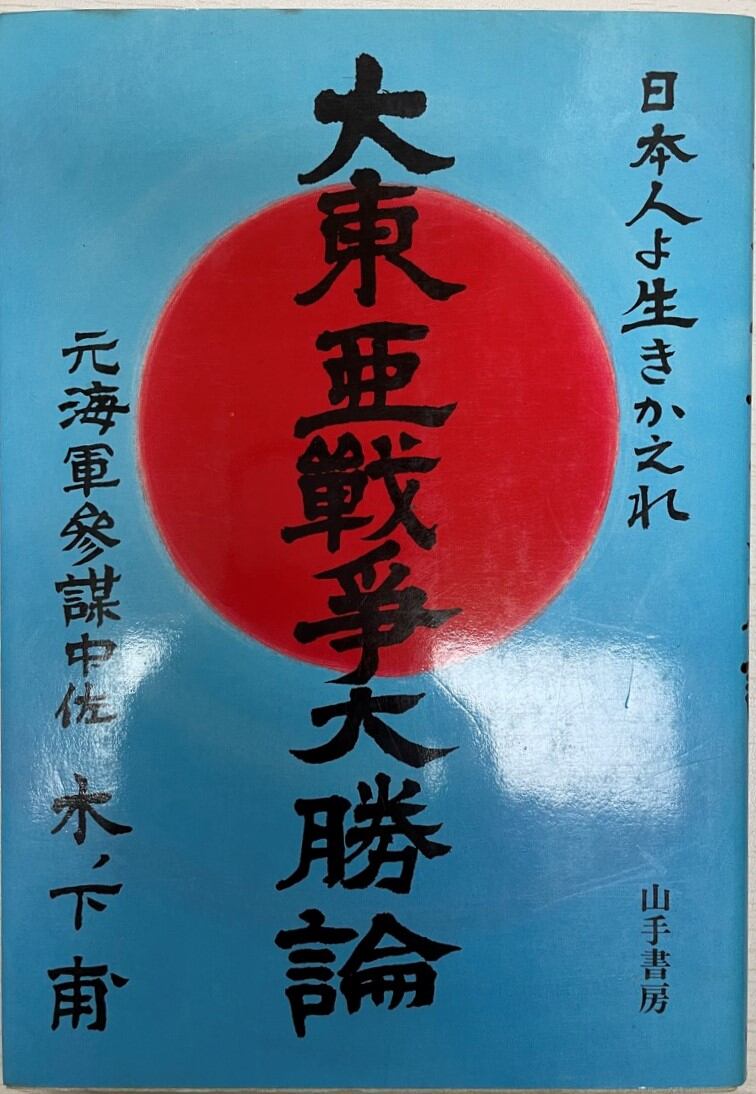 日本人よ生きかえれ
大東亜戦爭大勝論
元海軍参謀中佐 木ノ下甫
山手書房